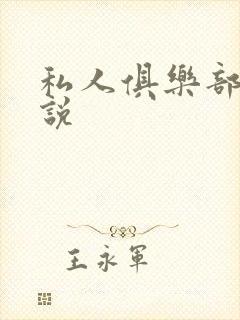 私人俱樂部
說
王永軍